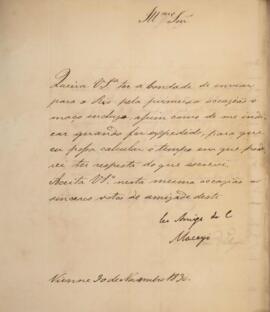 Illmo Snr
Queira V. Sa. ter a bondade de enviar
para o Rio pela primeira occazião o
maço incluzo, assim como de me indi
car quando for expedido, para que
eu possa calcular o tempo em que pode
rei ter resposta do que escrevi.
Aceite V. Sa. nesta mesma occazião os
sinceros votos de amizade deste
seu Amigo do C
Vienne 30 de Novembro